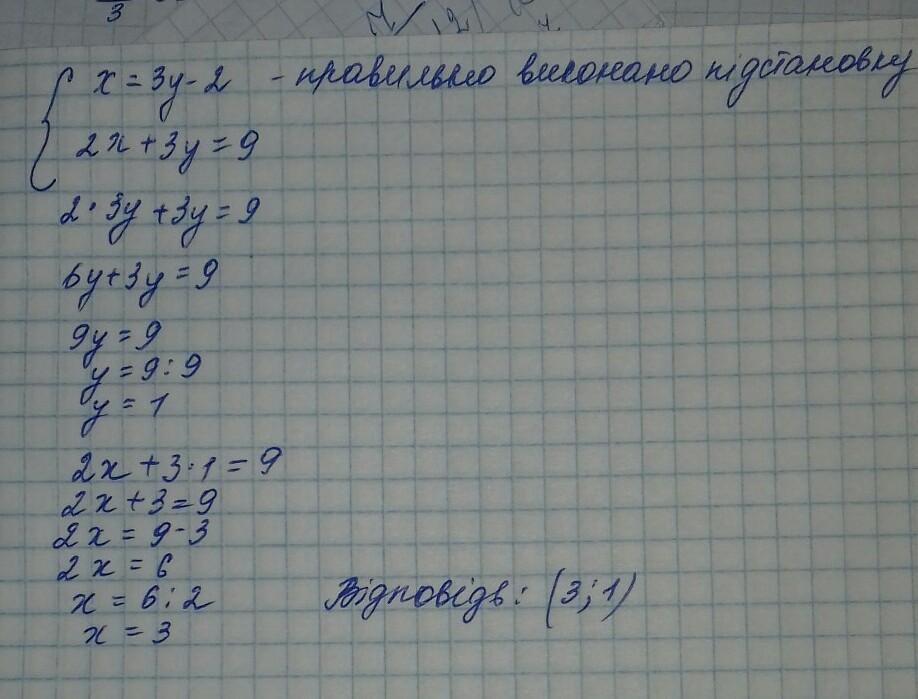 3
x = 3y - 2 - правильно виконано підстановку
2x + 3y = 9
2 · 3y + 3y = 9
6y + 3y = 9
9y = 9
y = 9 : 9
y = 1
2x + 3 · 1 = 9
2x + 3 = 9
2x = 9 - 3
2x = 6
x = 6 : 2 Відповідь: (3; 1)
x = 3